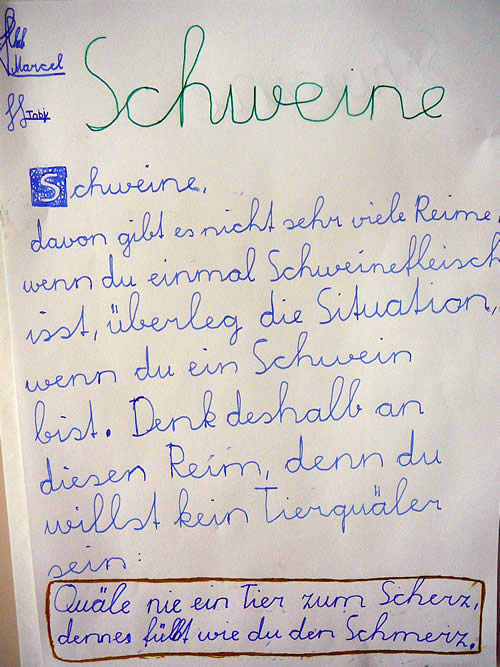 Marcel
Schweine
Tobi
Schweine,
davon gibt es nicht sehr viele Reime,
wenn du einmal Schweinefleisch
isst, überleg die Situation,
wenn du ein Schwein
bist. Denk deshalb an
diesen Reim, denn du
willst kein Tierquäler
sein:
Quäle nie ein Tier zum Scherz,
denn es fühlt wie du den Schmerz.